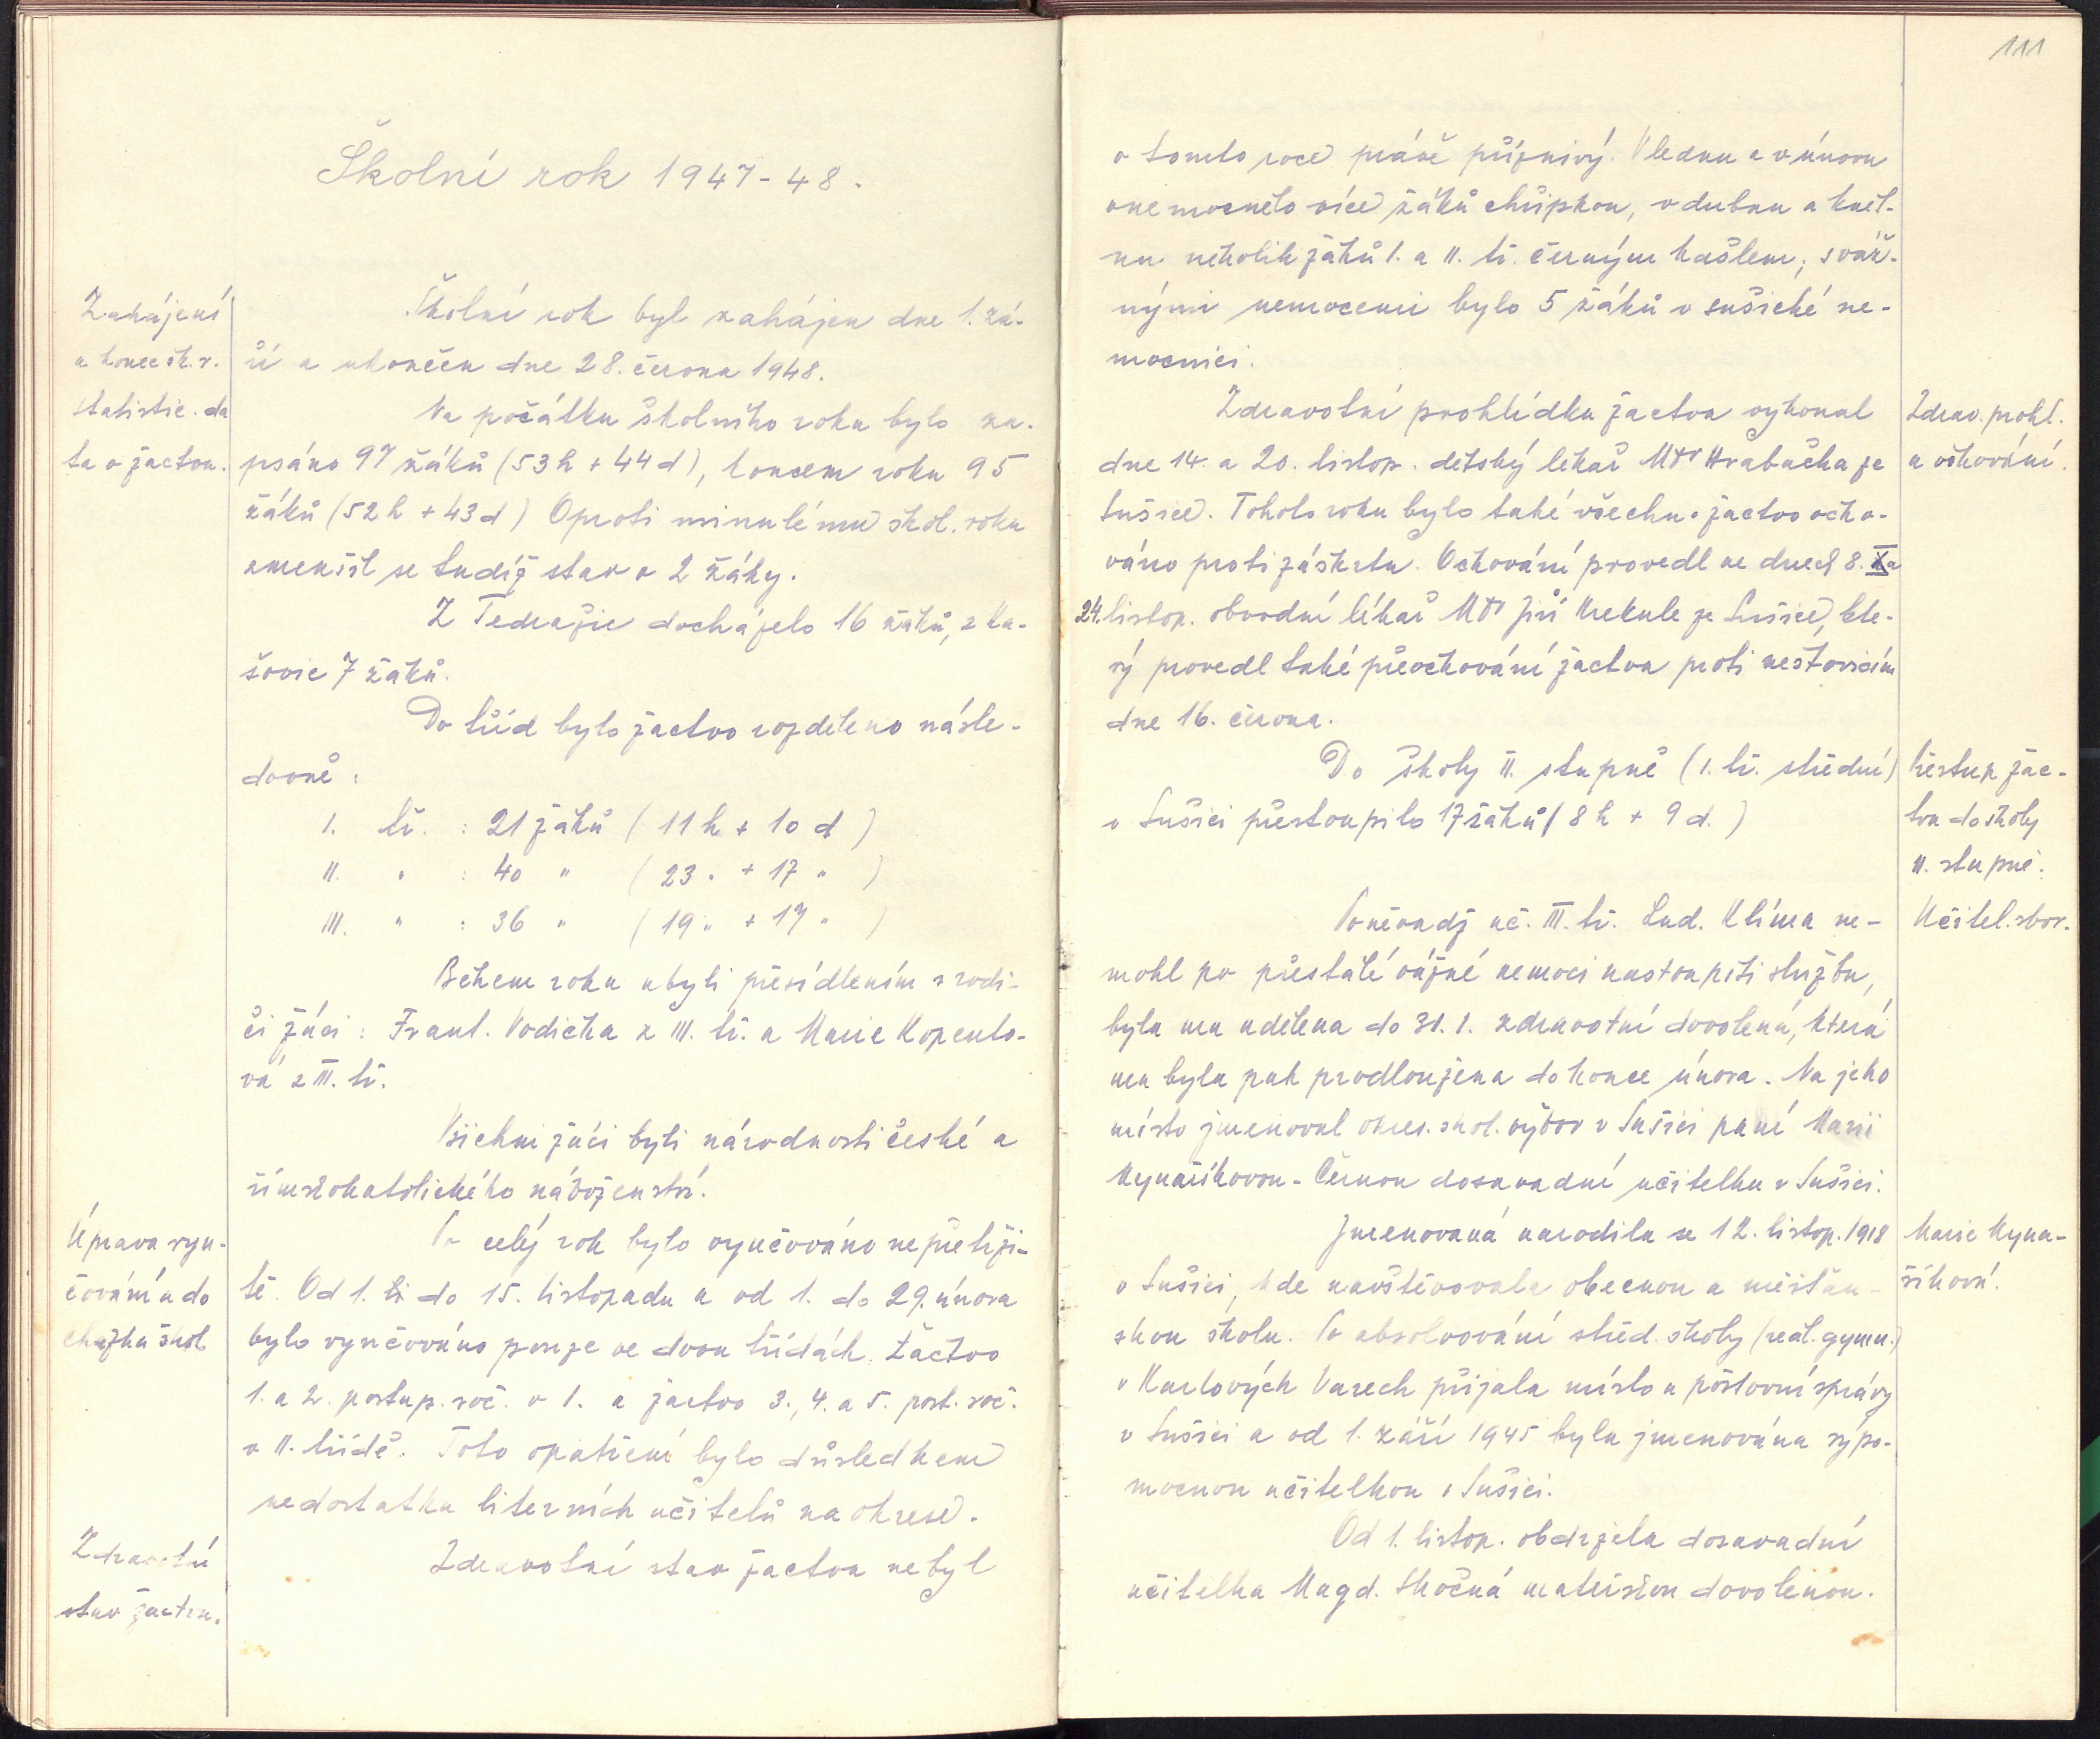 Školní rok 1947-48.
Zahájení
a konec šk. r.
statistic. da
ta o žactvu.
Školní rok byl zahájen dne 1. zá-
ří a ukončen dne 28. června 1948.
Na počátku školního roku bylo za-
psáno 97 žáků (53 h + 44 d), koncem roku 95
žáků (52 h + 43 d) Oproti minulému škol. roku
zmenšil se tudíž stav o 2 žáky.
Z Tedražic docházelo 16 žáků, z Ka-
šovic 7 žáků.
Do tříd bylo žactvo rozděleno násle-
dovně:
I. tř. : 21 žáků (11 h + 10 d)
II. " : 40 " (23 " + 17 " )
III. " : 36 " (19 " + 17 " )
Během roku ubyli přesídlením s rodi-
či žáci: Frant. Vodička z III. tř. a Marie Kopento-
vá z III. tř.
Všichni žáci byli národnosti české a
římskokatolického náboženství.
Úprava vyu-
čování a do
cházka škol.
Po celý rok bylo vyučováno nepřetrži-
tě. Od 1. li do 15. listopadu a od 1. do 29. února
bylo vyučováno pouze ve dvou třídách. Žactvo
1. a 2. postup. roč. v I. a žactvo 3., 4. a 5. post. roč.
v II. třídě. Toto opatření bylo důsledkem
nedostatku literních učitelů na okrese.
Zdravotní
stav žactva.
Zdravotní stav žactva nebyl
111
v tomto roce právě příznivý. V lednu a v únoru
onemocnělo více žáků chřipkou, v dubnu a květ-
nu několik žáků I. a II. tř. černým kašlem; s váž-
nými nemocemi bylo 5 žáků v sušické ne-
mocnici.
Zdravotní prohlídku žactva vykonal
dne 14. a 20. listop. dětský lékař MDr Hrabačka ze
Sušice. Tohoto roku bylo také všechno žactvo očko-
váno proti záškrtu. Očkování provedl ve dnech 8. X a
24. listop. obvodní lékař MDr Jiří Krekule ze Sušice, kte-
rý provedl také přeočkování žactva proti neštovicím
dne 16. června.
Zdrav. prohl.
a očkování.
Do školy II. stupně (1. tř. střední)
v Sušici přestoupilo 17 žáků (8 h + 9 d.)
Přestup žac-
tva do školy
II. stupně.
Poněvadž uč. III. tř. Lud. Klíma ne-
mohl po přestálé vážné nemoci nastoupiti službu,
byla mu udělena do 31. 1. zdravotní dovolená, která
mu byla pak prodloužena do konce února. Na jeho
místo jmenoval okres. škol. výbor v Sušici paní Marii
Mynaříkovou - Černou dosavadní učitelku v Sušici.
Učitel. sbor.
Jmenovaná narodila se 12. listop. 1918
v Sušici, kde navštěvovala obecnou a měšťan-
skou školu. Po absolvování střed. školy (reál. gymn.)
v Karlových Varech přijala místo u poštovní správy
v Sušici a od 1. září 1945 byla jmenována výpo-
mocnou učitelkou v Sušici.
Marie Myna-
říková.
Od 1. listop. obdržela dosavadní
učitelka Magd. Skočná mateřskou dovolenou.